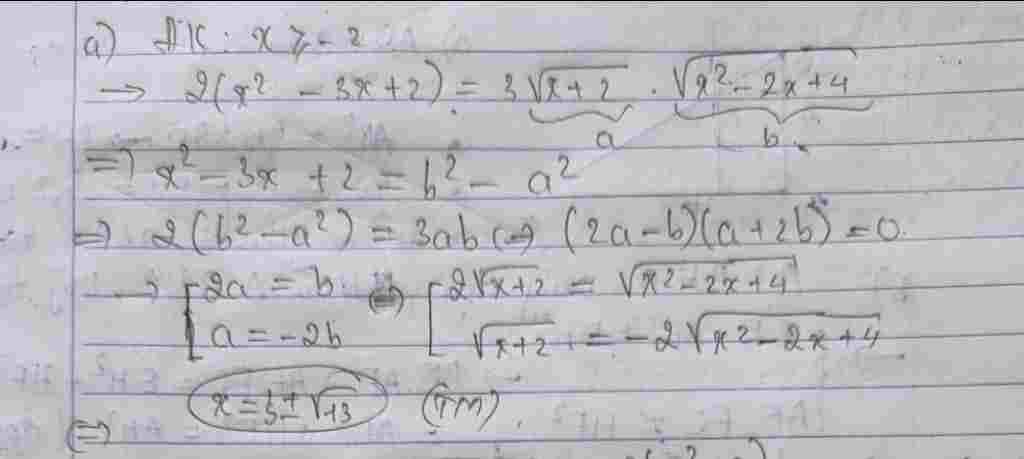 a) ĐK: x ≥ -2
→ 2(x² - 3x + 2) = 3√(x+2) . √(x² - 2x + 4)
a b
⇒ x² - 3x + 2 = b² - a²
⇒ 2(b² - a²) = 3ab ⇔ (2a - b)(a + 2b) = 0
→ [ 2a = b ⇔ [ 2√(x+2) = √(x² - 2x + 4)
a = -2b √(x+2) = -2√(x² - 2x + 4)
⇔ x = 3 ± √13 (TM).